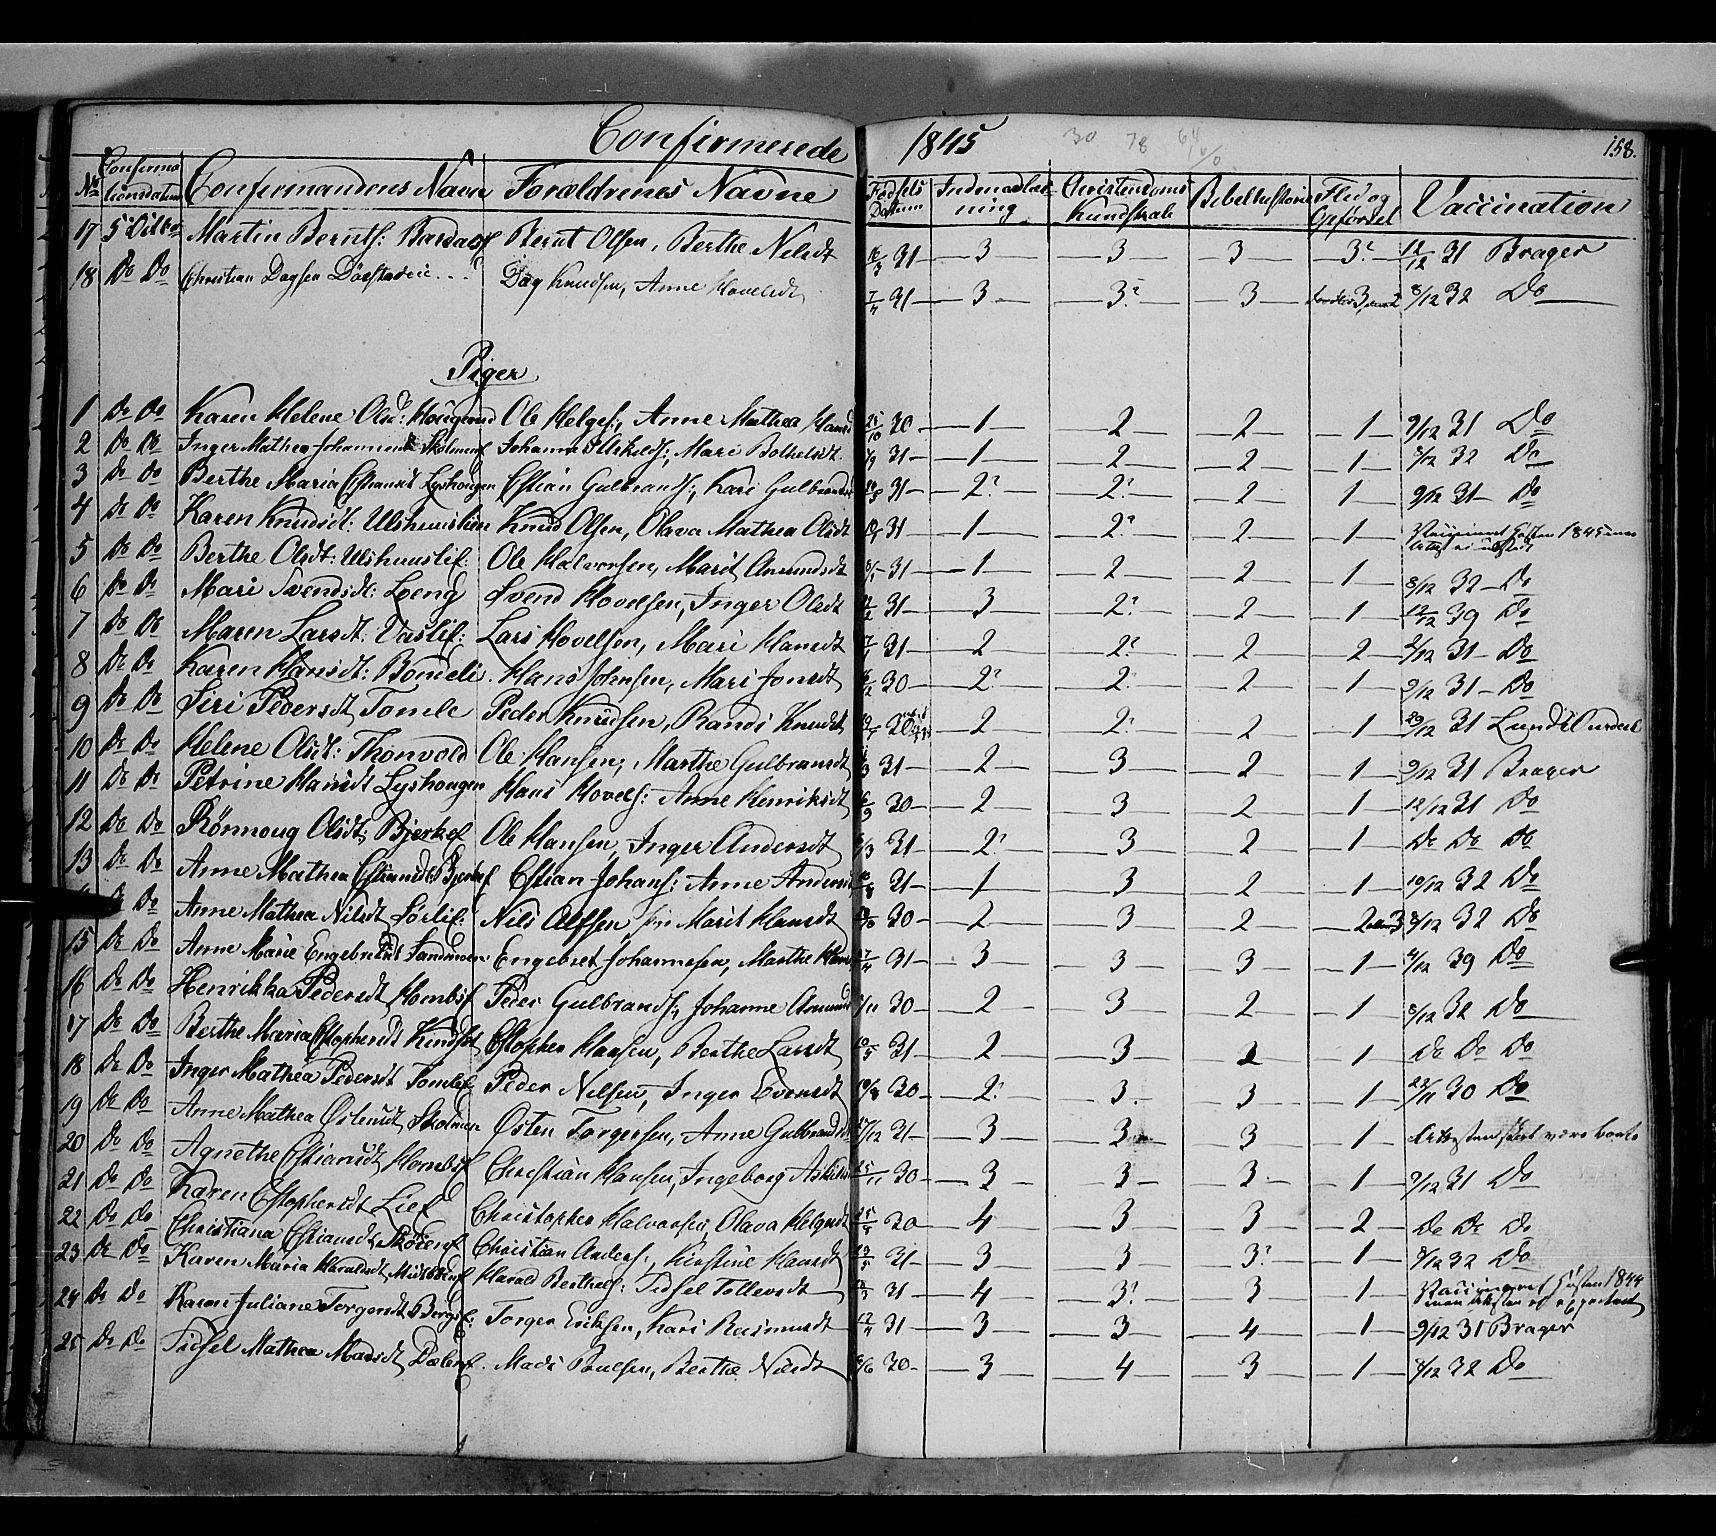 Confirmerede 1845 30 78 64 158.
No Confirmationsdatum Confirmandens Navn Forældrenes Navne Fødsels Datum Indenadlæsning Christendoms Kundskab Bibelhistorie Flid og Opførsel Vaccination
17 5 Octbr Martin Bernts: Bardal Bernt Olsen, Berthe Nilsdt 16/3 31 3 3 3 3? 12/12 31 Brager
18 Do Do Christian Dagsen Døestadeie Dag Knudsen, Anne Hovelsdt 7/4 31 3 3? 3 3 8/12 32 Do
Piger
1 Do Do Karen Helene Olsdt: Hougerud Ole Helges:, Anne Mathea Hansd 25/10 30 1 2 2 1 9/12 31 Do
2 Do Do Inger Mathea Johannesdt Johannes Mikels:, Mari Bothelsdt /9 31 1 2 2 1 8/12 32 Do
3 Do Do Berthe Maria Cstiansdt Lyshougen Cstian Gulbrands:, Kari Gulbrandsd 31 2? 2? 2 1 9/12 31 Do
4 Do Do Karen Knudsdt: Ulshuustien Knud Olsen, Olava Mathea Olsdt 31 1 2? 2 1 Vaccineret Høsten 1845 men
Attest ei udstedt
5 Do Do Berthe Olsdt: Ulshuuslif: Ole Halvorsen, Marit Amundsdt 31 1 2 2 1 8/12 32 Do
6 Do Do Mari Svendsdt: Loeng Svend Hovelsen, Inger Olsdt 31 3 2? 2 1 12/12 39 Do
7 Do Do Maren Larsdt: Vaslif: Lars Hovelsen, Mari Hansdt 31 2 2? 2 2 2/12 31 Do
8 Do Do Karen Hansdt: Bondeli Hans Johnsen, Mari Jonsdt 30 2? 2? 2 1 9/12 31 Do
9 Do Do Siri Pedersdt Tomle Peder Knudsen, Randi Knudsdt 2 2? 2 1 29/12 31 Lund i Ourdal
10 Do Do Helene Olsdt: Thonvold Ole Hansen, Marthe Gulbrandsdt 31 2 3 2 1 9/12 31 Brager
11 Do Do Petrine Hansdt Lyshougen Hans Hovels: Anne Henriksdt 30 2 3 2 1 12/12 31 Do
12 Do Do Rønnoug Olsdt: Bjerkef Ole Hansen, Inger Andersdt /3 31 2? 3 2 1 Do Do Do
13 Do Do Anne Mathea Cstiansdt Cstian Johans: Anne Andersd 31 1 3 2 1 10/12 32 Do
Do Anne Mathea Nilsdt Sørlif: Nils Alfsen, Marit Hansdt 30 2 3 2 2 8/12 32 Do
15 Do Do Anne Marie Engebretsdt Sandmoen Engebret Johannesen, Marthe 27/4 31 3 3 3 1 4/12 39 Do
16 Do Do Henrikka Pedersdt Hombsf Peder Gulbrands:, Johanne Amunds /11 30 2 3 2 1 8/12 32 Do
17 Do Do Berthe Maria Cstophersdt Cstopher Hansen, Berthe Larsdt 31 2 3 2 1 Do Do Do
18 Do Do Inger Mathea Pedersdt Tomlef Peder Nilsen, Inger Evensdt 10/8 30 2? 3. 3 1 23/11 30 Do
19 Do Do Anne Mathea Østensdt Skolmen Østen Torgersen, Anne Gulbrandsdt 17/12 31 3 3 3 1 Attesten være borte
20 Do Do Agnethe Cstiansdt Hombsf Christian Hansen, Ingeborg 25/11 30 3 3 3 1 9/12 31 Do
21 Do Do Karen Cstophersdt Lief Christopher Halvorsen, Olava Helgesdt 30 4 3 3 2 Do Do Do
22 Do Do Christiana Cstiansdt Skøienf Christian Anders:, Kirstine Hansdt 31 3 3 3? 1 8/12 32 Do
23 Do Do Karen Maria Haraldsdt Harald Berthels: Sidsel Tollevsdt 31 4 3? 3 1 Vaccineret Høsten 1844
24 Do Do Karen Juliane Torgersdt Bergsf: Torger Eriksen, Kari Rasmusdt 12/4 31 3 3 4 1 9/12 31 Brager
25 Do Do Sidsel Mathea Madsdt Dælenf. Mads Poulsen, Berthe Nilsdt /6 30 3 4 3 1 8/12 32 Do